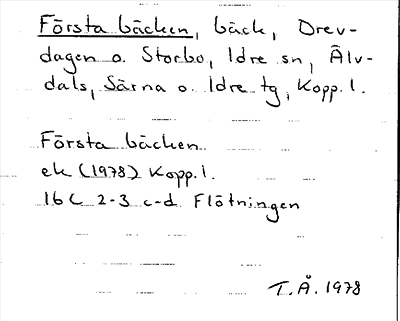 Första bäcken, bäck, Drev-
dagen o. Storbo, Idre sn, Älv-
dals, Särna o. Idre tg, Kopp. l.
Första bäcken
ek (1978) Kopp. l.
16C 2-3 c-d Flötningen
T. Å. 1978